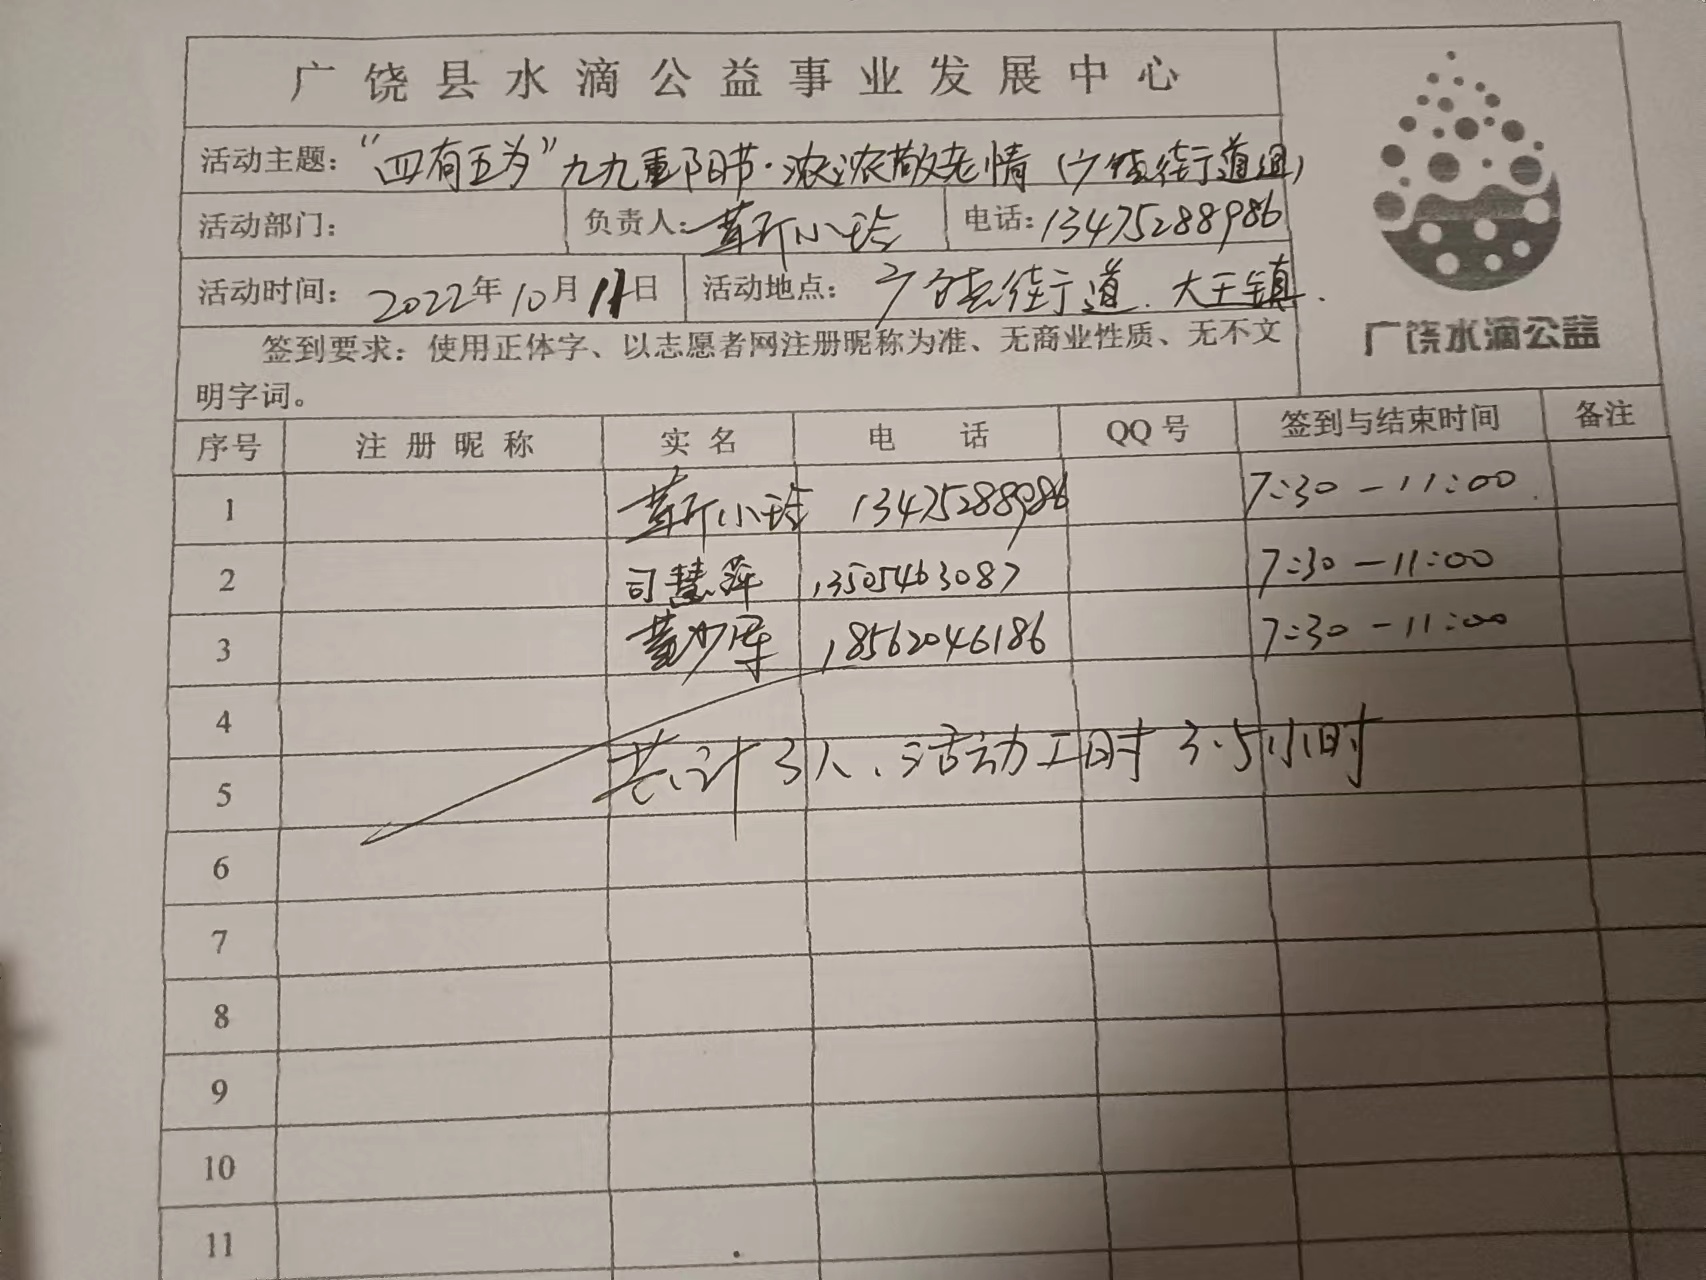 广饶县水滴公益事业发展中心
活动主题：“四有五为”九九重阳节·浓浓敬老情（广饶街道
活动部门： 负责人： 小玲 电话：13475288986
活动时间：2022年10月11日 活动地点：广饶街道、大王镇.
签到要求：使用正体字、以志愿者网注册昵称为准、无商业性质、无不文
明字词。
广饶水滴公益
序号 注册昵称 实名 电话 QQ号 签到与结束时间 备注
1 小玲 13475288986 7:30-11:00
2 司慧萍 13505463087 7:30-11:00
3 18562046186 7:30-11:00
4
共计3人、活动工时3.5小时
5
6
7
8
9
10
11